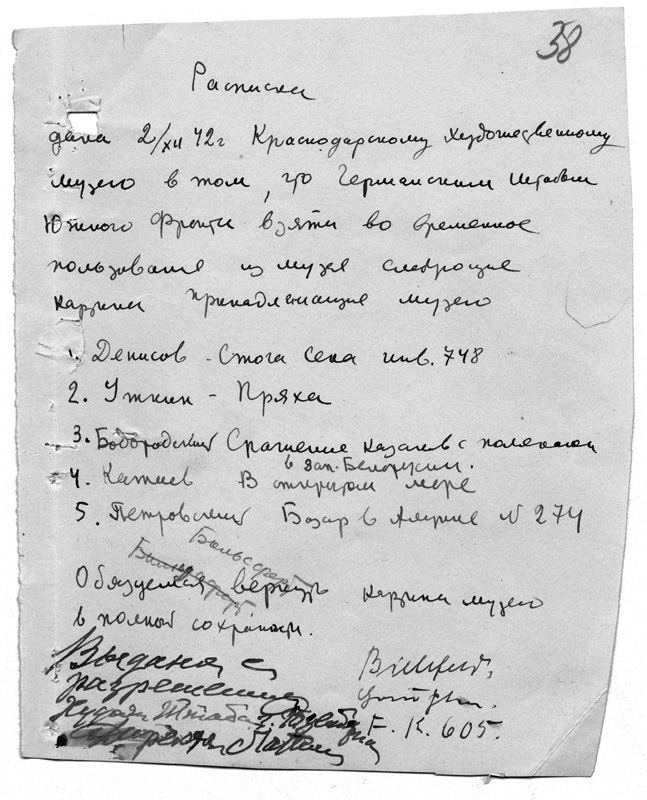 38
Расписка
дана 2/XII 42 г Краснодарскому Художественному
музею в том, что Германским Штабом
Южного Фронта взяты во временное
пользование из музея следующие
картины принадлежащие музею
1. Денисов - Стога сена инв. 748
2. Уткин - Пряха
3. Сражение казаков с поляками
в Зап. Белорусии.
4. В открытом море
5. Петровский Базар в N 274
Обязуемся вернуть картины музею
в полной сохранности.
Выдана с
разрешения
Штаба
F. K. 605.